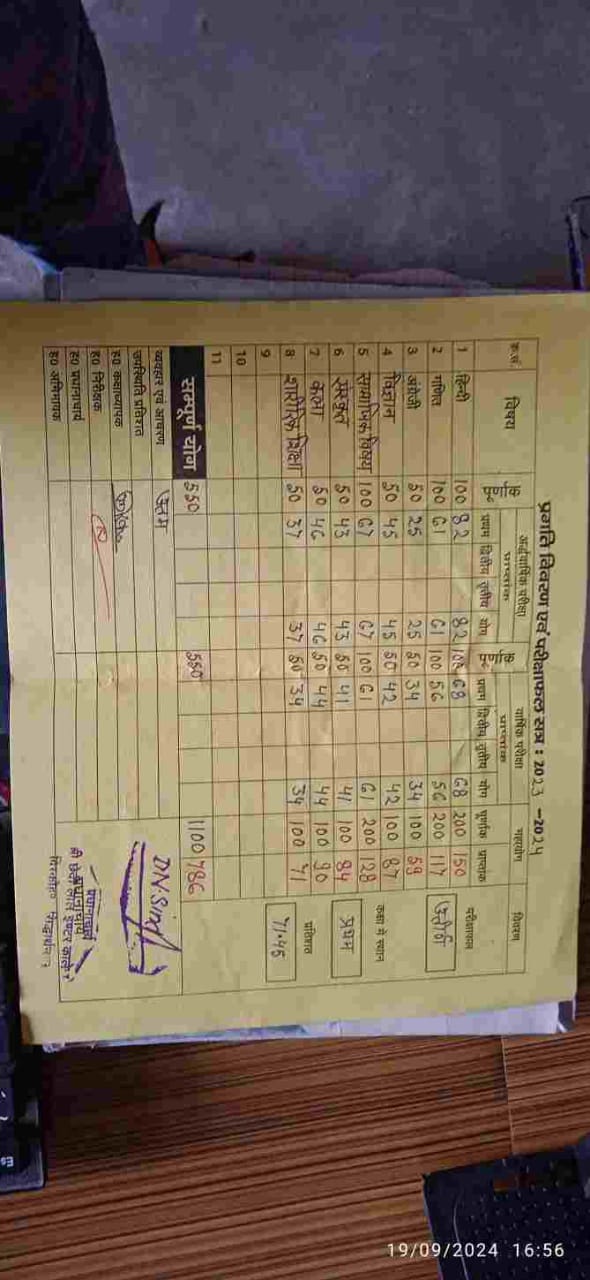 प्रगति विवरण एवं परीक्षाफल सत्र : 2023 -2024
क्र.सं. विषय पूर्णांक अर्द्धवार्षिक परीक्षा प्राप्तांक पूर्णांक वार्षिक परीक्षा प्राप्तांक महायोग विवरण
प्रथम द्वितीय तृतीय योग प्रथम द्वितीय तृतीय योग पूर्णांक प्राप्तांक
1 हिन्दी 100 82 82 100 68 68 200 150 परीक्षाफल
2 गणित 100 61 61 100 56 56 200 117 उत्तीर्ण
3 अंग्रेजी 50 25 25 50 34 34 100 59
4 विज्ञान 50 45 45 50 42 42 100 87 कक्षा में स्थान
5 सामाजिक विषय 100 67 67 100 61 61 200 128
6 संस्कृत 50 43 43 50 41 41 100 84 प्रथम
7 कला 50 46 46 50 44 44 100 90 प्रतिशत
8 शारीरिक शिक्षा 50 37 37 50 34 34 100 71 71.45
9
10
11
सम्पूर्ण योग 550 550 1100 786
व्यवहार एवं आचरण उत्तम
उपस्थिति प्रतिशत
ह0 कक्षाध्यापक
ह0 निरीक्षक
ह0 प्रधानाचार्य
ह0 अभिभावक
D.N. Singh
प्रधानाचार्य
19/09/2024 16:56